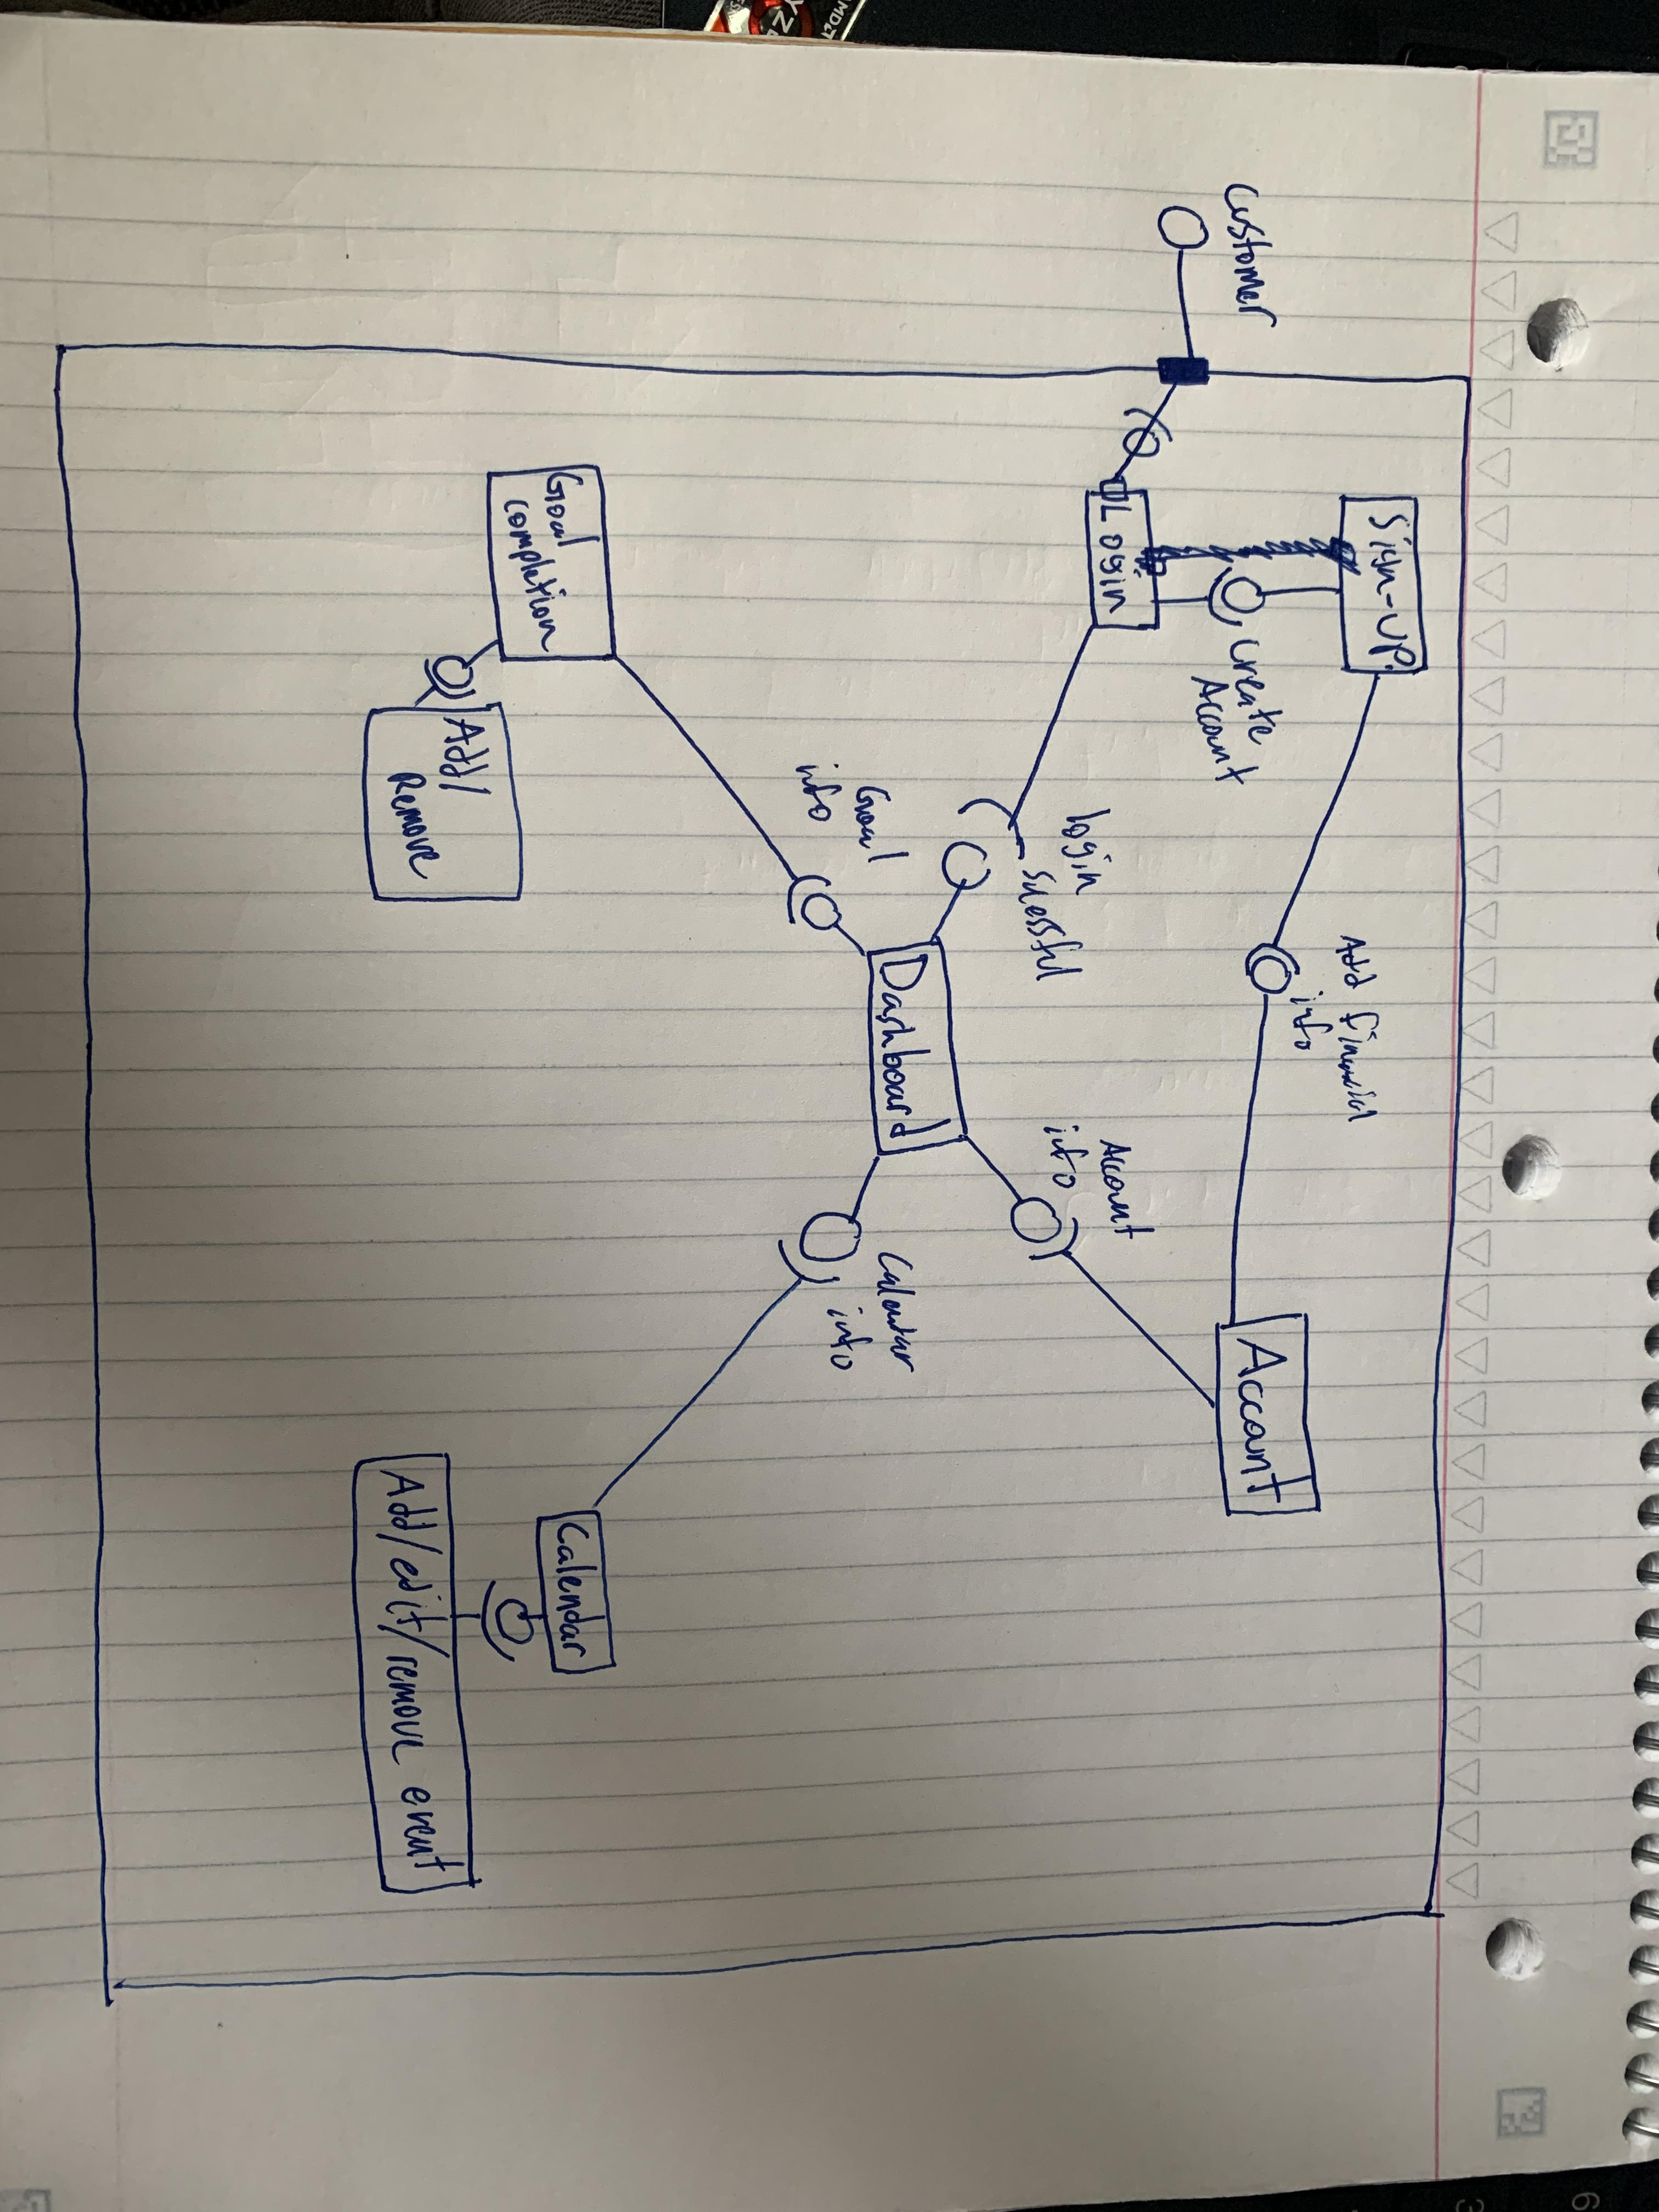 Sign-UP.
Add financial
info
Account
Customer
Create
Account
Login
login
Sucessful
Account
info
Dashboard
Goal
info
Calendar
info
Goal
completion
Calendar
Add/
Remove
Add/edit/remove event
AMD